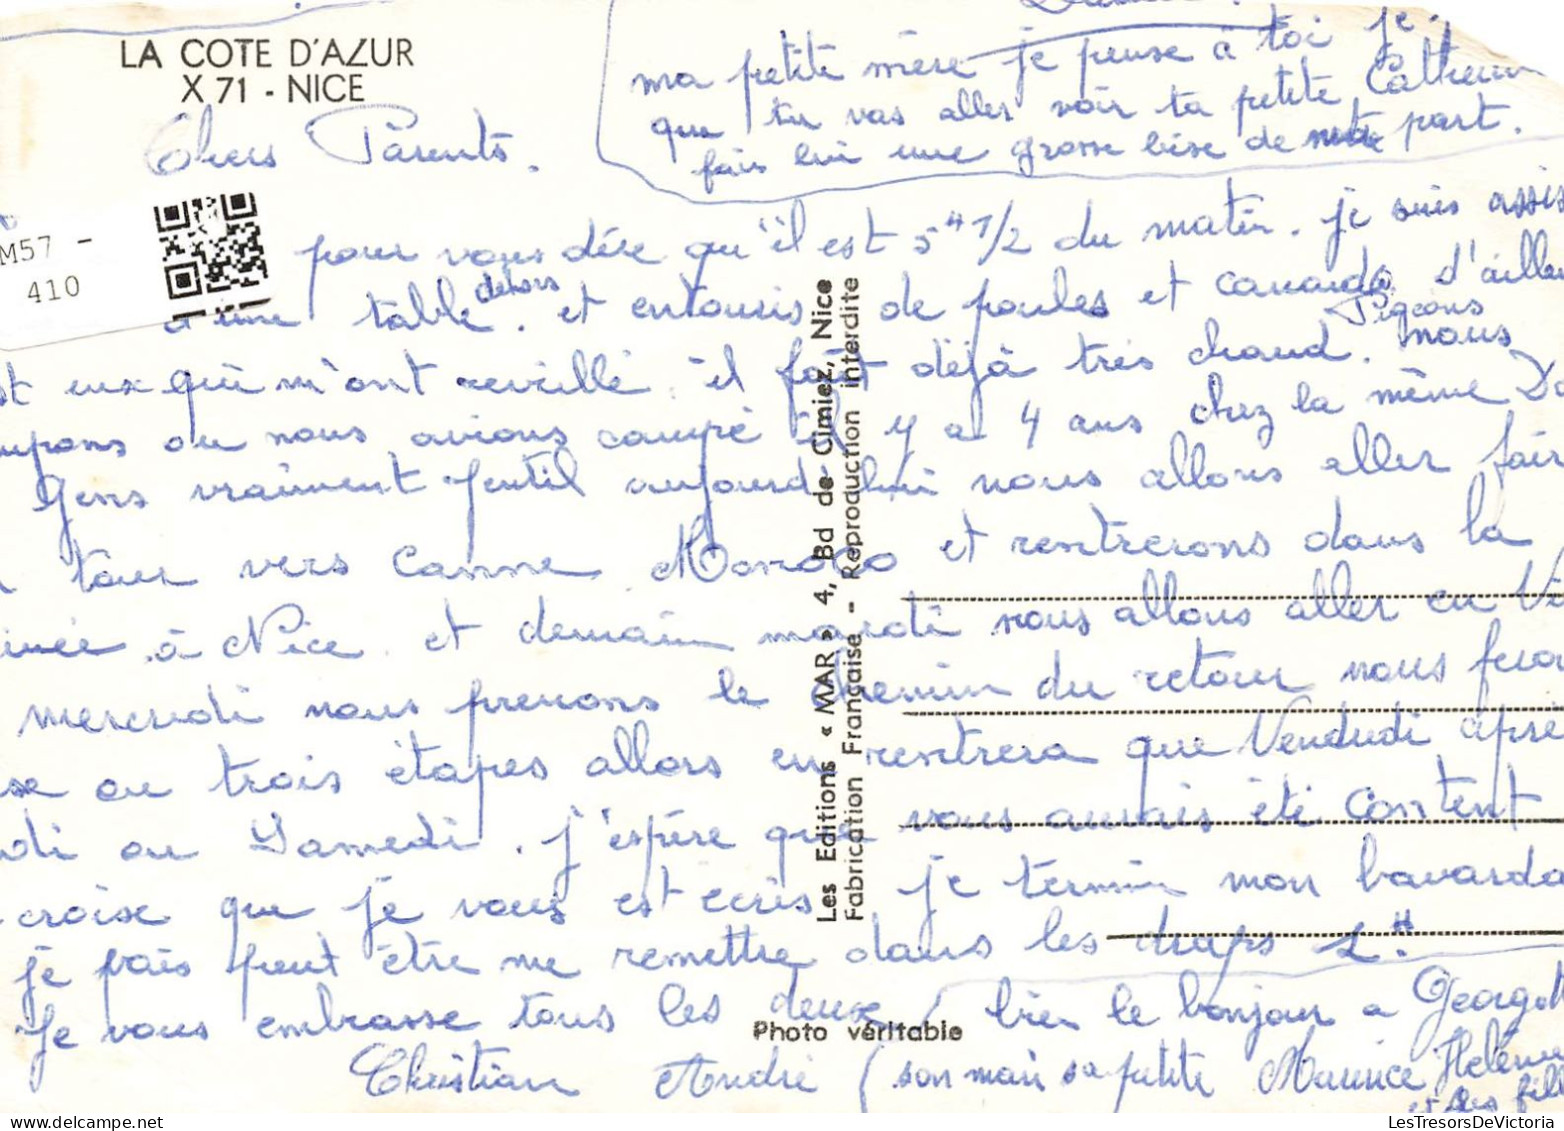 LA COTE D'AZUR
X 71 - NICE
ma petite mère je pense à toi je
que tu vas aller voir ta petite
fais lui une grosse bise de notre part.
Chers Parents.
M57 -
410
pour vous dire qu'il est 5 H 1/2 du matin. je suis assis
a une table dehors. et entouris de poules et canards Pigeons d'aille
st eux qui m'ont reveillé il fait déjà très chaud. nous
upons ou nous avions campé il y a 4 ans chez la même
Gens vraiment gentil aujourd'hui nous allons aller fair
tour vers Canne Monoco et rentrerons dans la
à Nice. et demain mardi nous allons aller en
mercredi nous prenons le chemin du retour nous feron
ou trois étapes allors en rentrera que Vendredi aprè
di ou Samedi. j'espère que vous aurais été content
croise que je vous est ecris je termin mon bavarda
je vais peut être me remettre dans les draps 1 H.
Je vous embrasse tous les deux
bien le bonjour a Georgett
Christian André (son mari sa petite Maurice Helène
et les fill
Les Editions « MAR » 4, Bd de Cimiez, Nice
Fabrication Française - Reproduction interdite
Photo véritable
LesTresorsDeVictoria